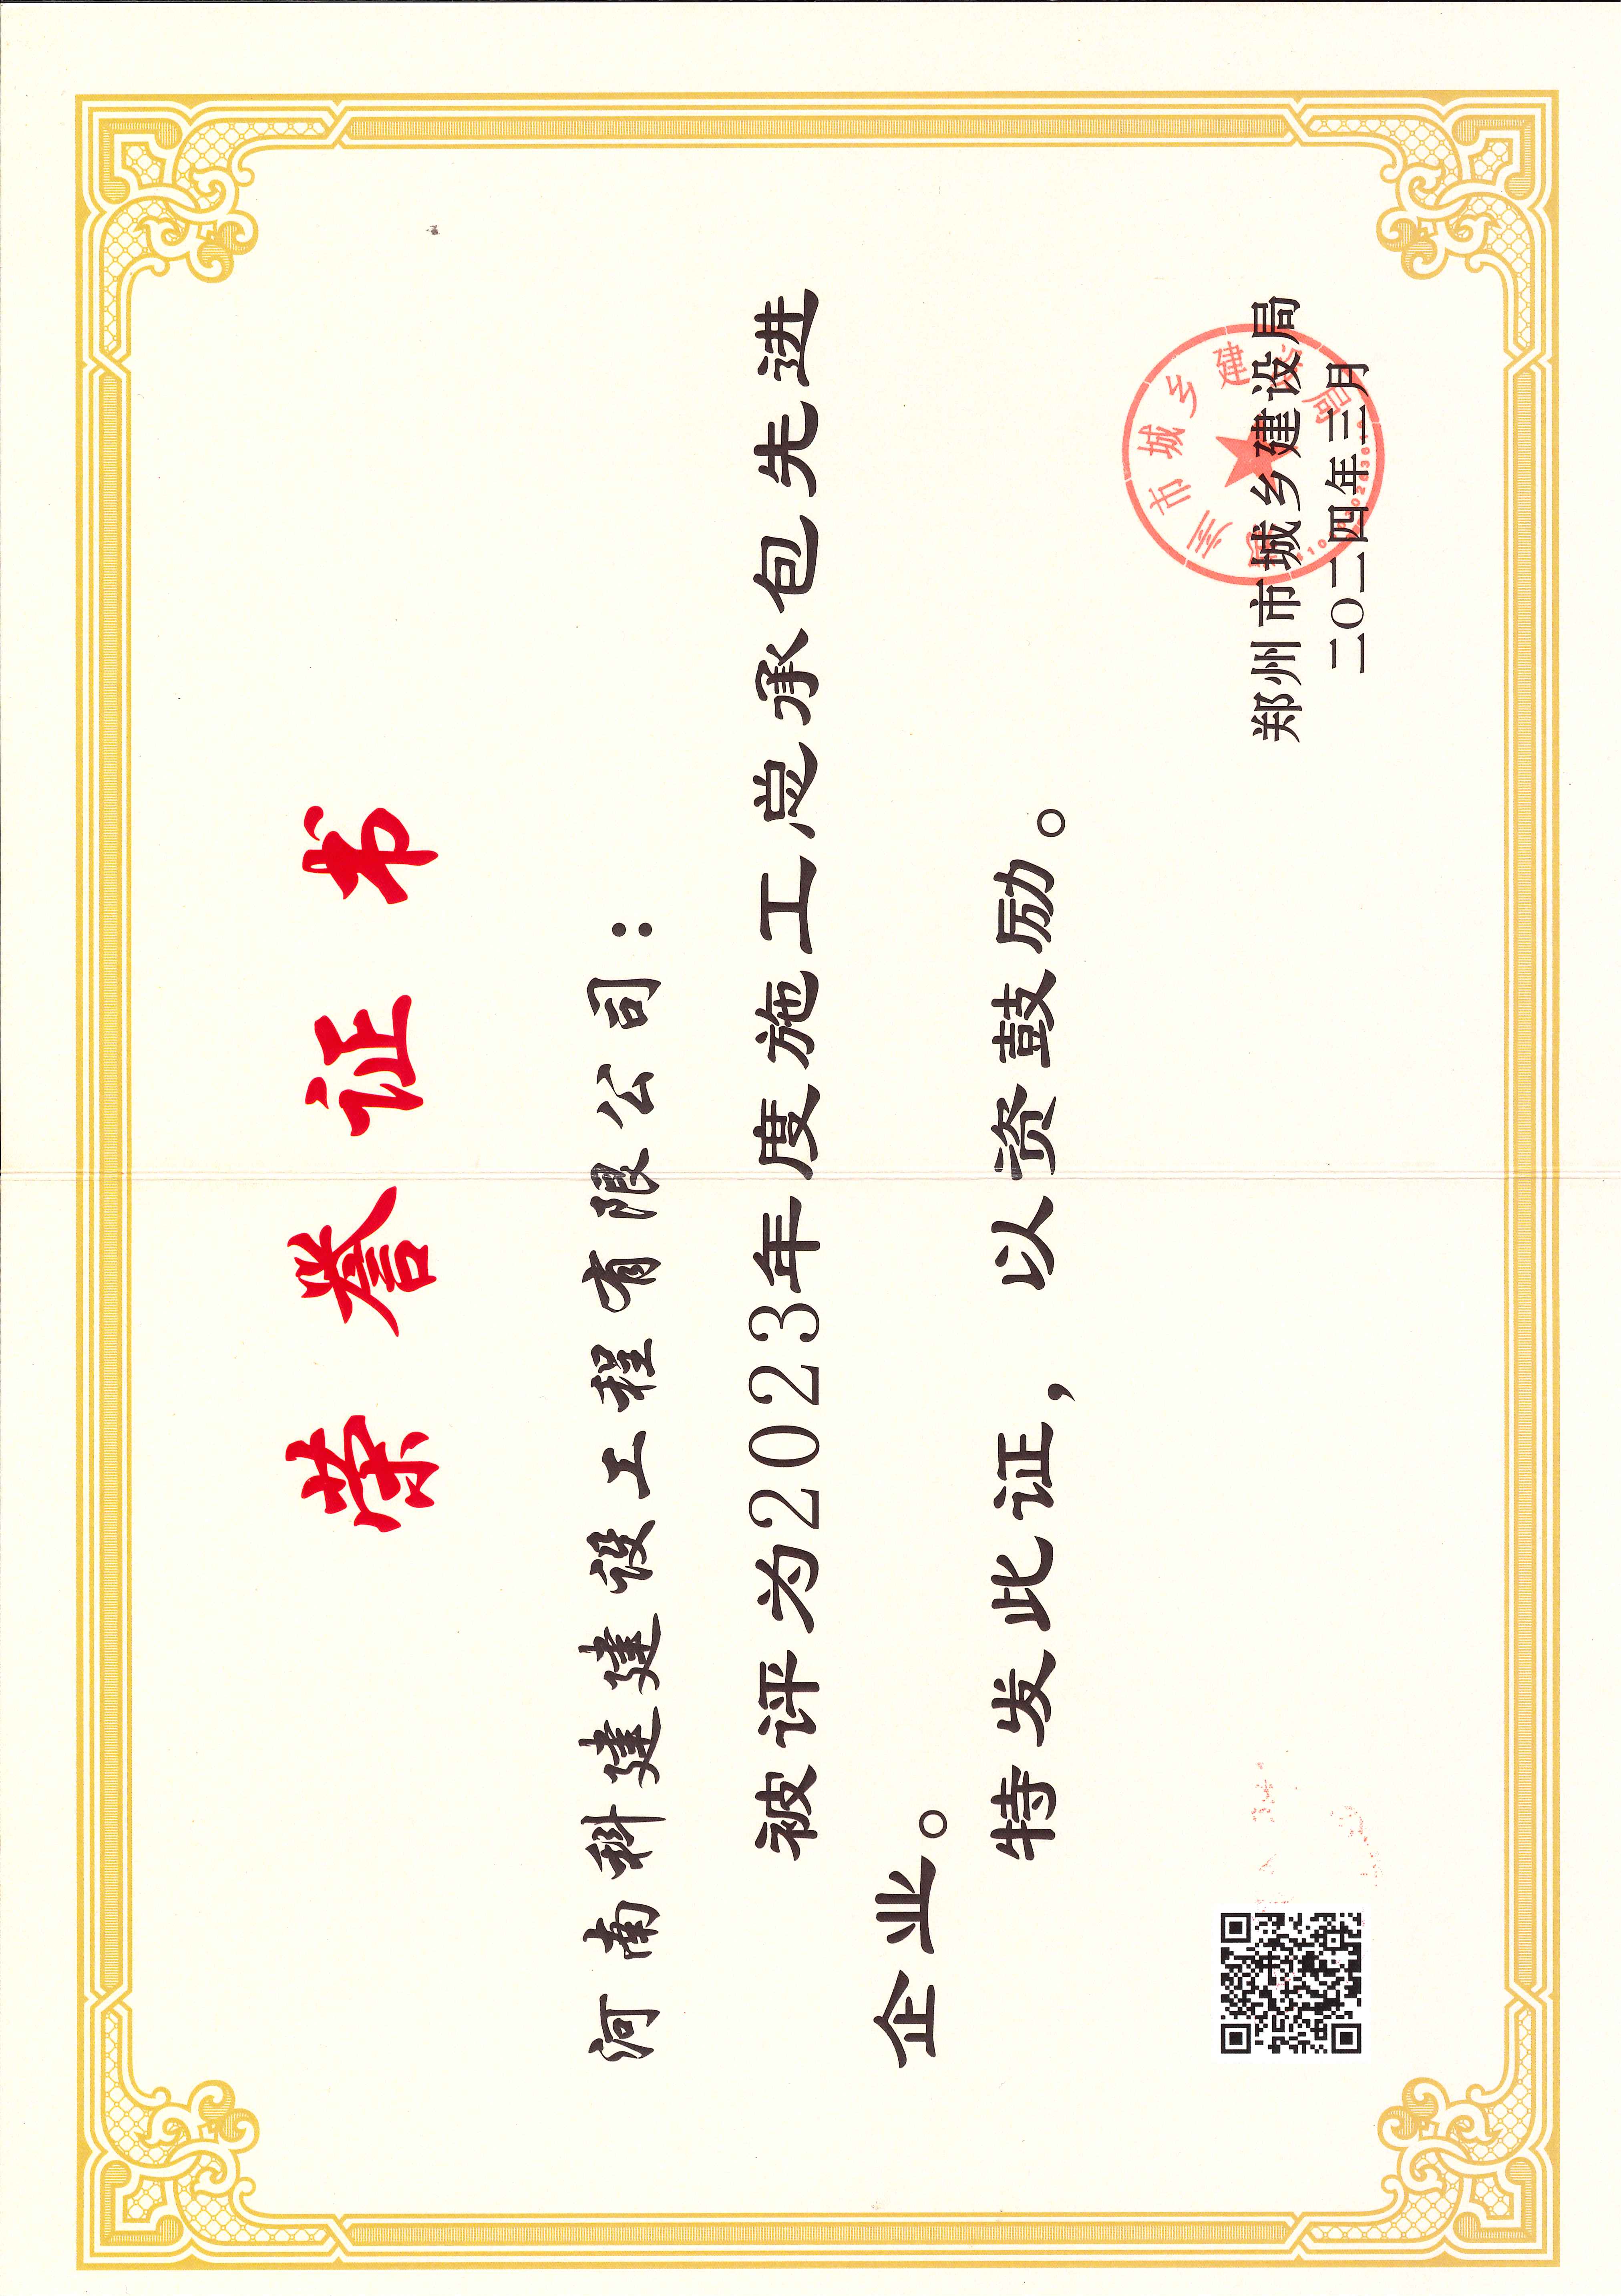 荣誉证书
河南科建建设工程有限公司：
被评为2023年度施工总承包先进
企业。
特发此证，以资鼓励。
郑州市城乡建设局
二〇二四年三月
州市城乡建设局